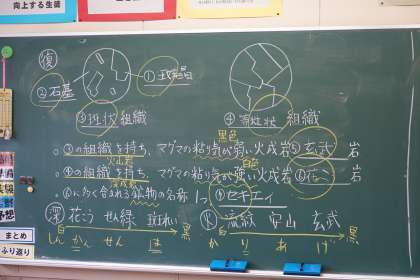 向上する生徒
復
①斑晶
②石基
③斑状組織
④等粒状組織
黒色
○③の組織を持ち、マグマの粘り気が弱い火成岩⑤玄武岩
火山岩
白色
○④の組織を持ち、マグマの粘り気が強い火成岩⑥花こう岩
深成岩
○⑥に多く含まれる鉱物の名称1つ⑦セキエイ
深 花こう せん緑 斑れい
火 流紋 安山 玄武
白 黒
白 黒
しん かん せん は
か り あ げ
まとめ
ふり返り